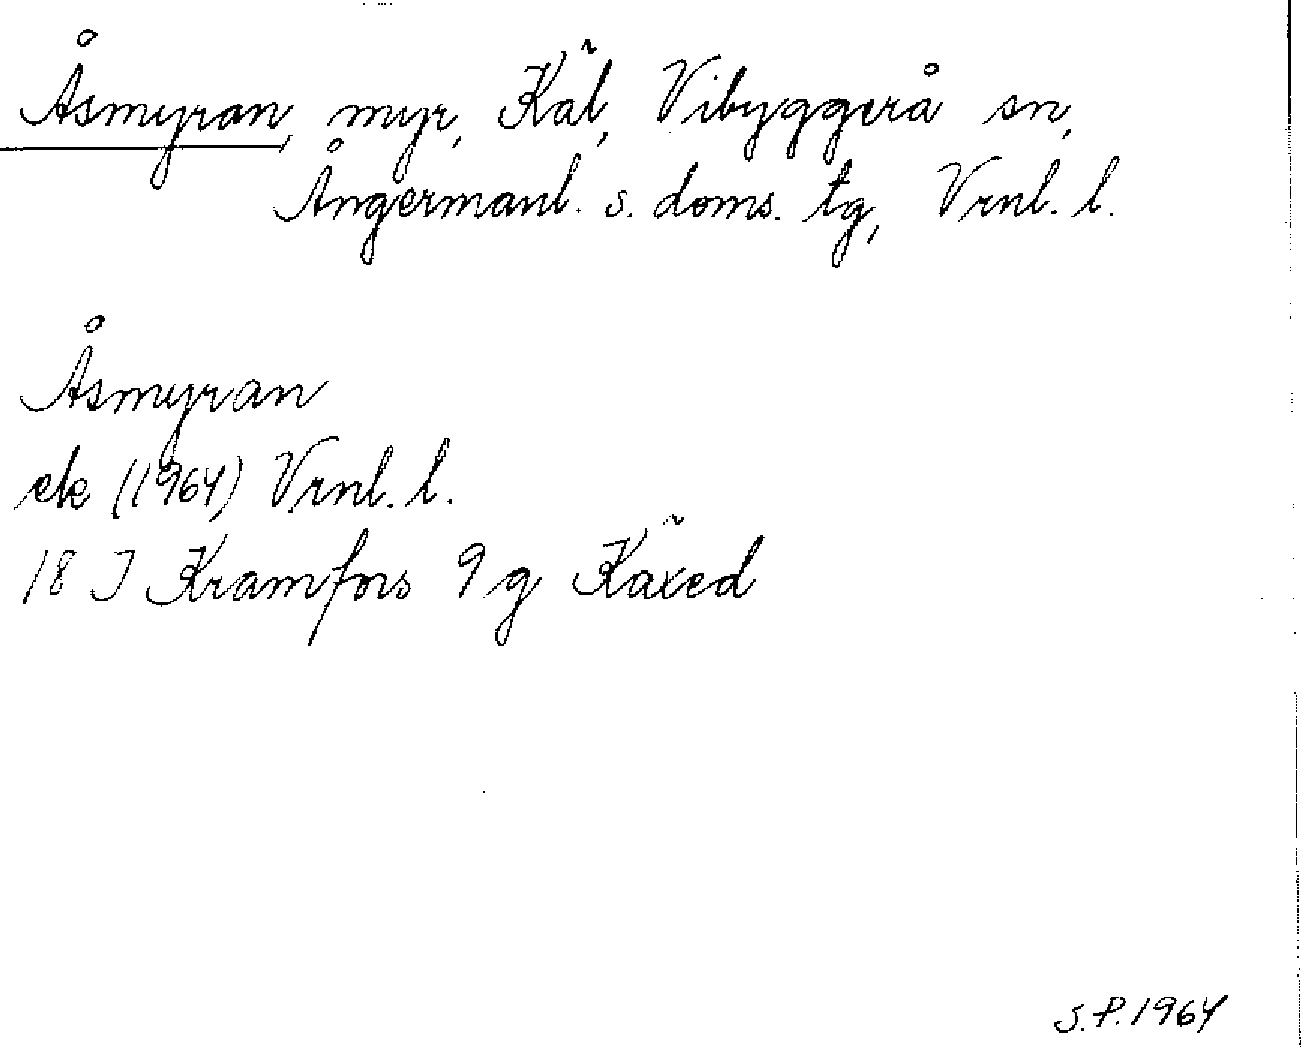 Åsmyran, myr, Käl, Vibyggerå sn,
Ångermanl. s. doms. tg, Vrnl. l.
Åsmyran
ek (1964) Vrnl. l.
18 I Kramfors 9 g Käxed
S.P. 1964